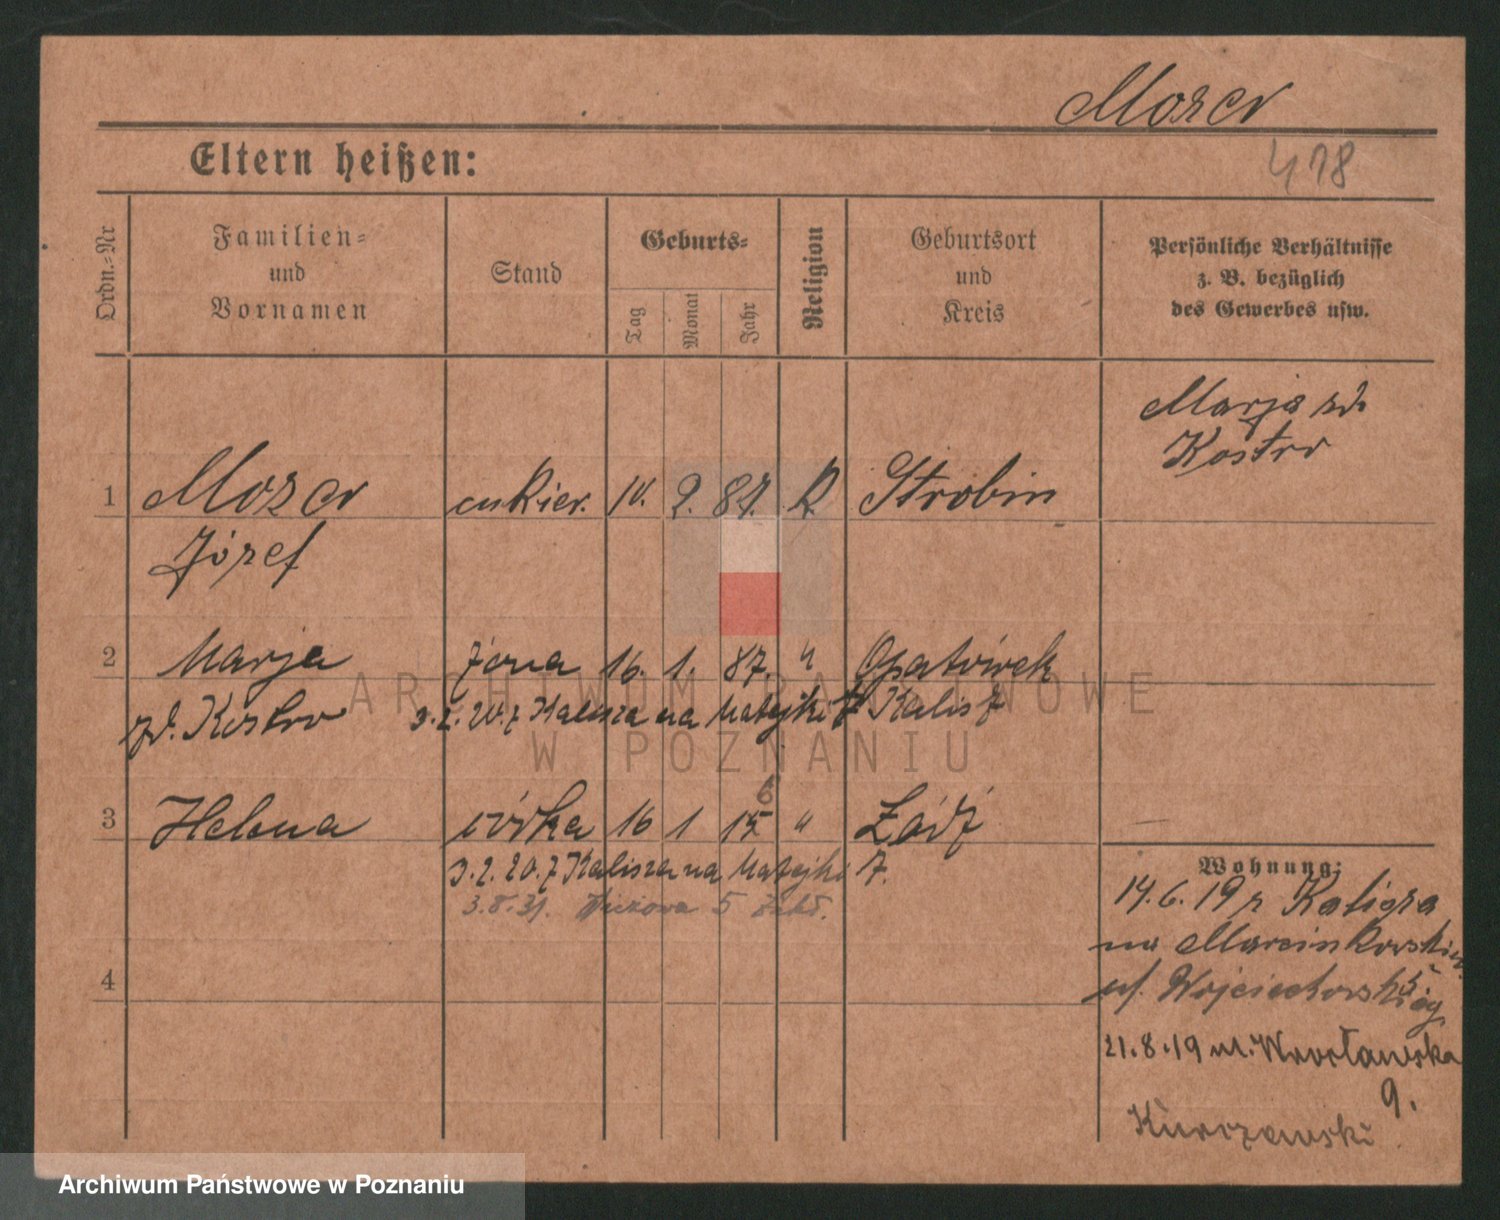 Mozer
418
Eltern heißen:
Ordn.-Nr
Familien-
und
Vornamen
Stand
Geburts-
Tag
Monat
Jahr
Religion
Geburtsort
und
Kreis
Persönliche Verhältnisse
z. B. bezüglich
des Gewerbes usw.
Marja zd.
Kostro
1 Mozer cukier. 10. 2. 87. R. Strobin
Józef
2 Marja żona 16. 1. 87. " Opatówek
zd. Kostro 3.2.20. z Kalisza na Matejki 7 Kalisz
6
3 Helena córka 16 1 15 " Łódź
3.2.20. z Kalisza na Matejki 7.
3.8.31. 5
4
Wohnung:
14.6.19 z Kalisza
na Marcinkowskiego
ul. Wojciechowskiego
5
21.8.19 ul. Wrocławska
9.
Kurzewski
ARCHIWUM PAŃSTWOWE
W POZNANIU
Archiwum Państwowe w Poznaniu